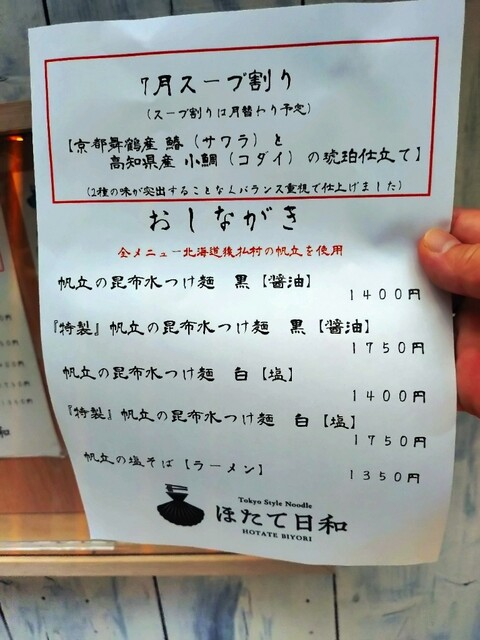 7月スープ割り
(スープ割りは月替わり予定)
【京都舞鶴産 鰆（サワラ）と
高知県産 小鯛（コダイ）の琥珀仕立て】
(2種の味が突出することなくバランス重視で仕上げました)
おしながき
全メニュー北海道猿払村の帆立を使用
帆立の昆布水つけ麺 黒【醤油】
1400円
『特製』帆立の昆布水つけ麺 黒【醤油】
1750円
帆立の昆布水つけ麺 白【塩】
1400円
『特製』帆立の昆布水つけ麺 白【塩】
1750円
帆立の塩そば【ラーメン】
1350円
Tokyo Style Noodle
ほたて日和
HOTATE BIYORI